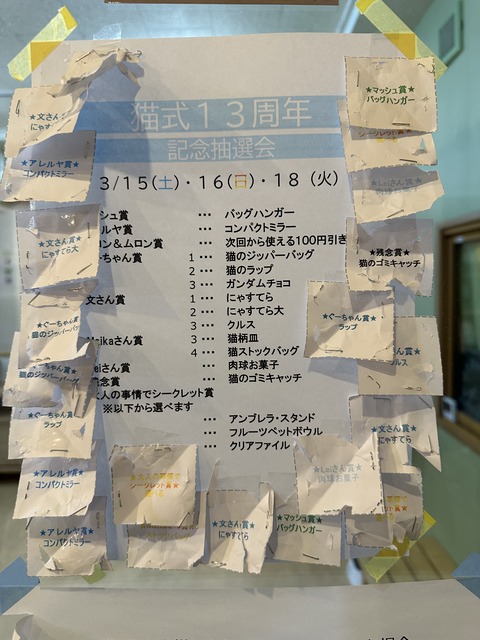 猫式13周年
記念抽選会
3/15(土)・16(日)・18(火)
シュ賞 … バッグハンガー
ルヤ賞 … コンパクトミラー
ョン&ムロン賞 … 次回から使える100円引き
ーちゃん賞 1 … 猫のジッパーバッグ
2 … 猫のラップ
3 … ガンダムチョコ
文さん賞 1 … にゃすてら
2 … にゃすてら大
3 … クルス
Meikaさん賞 3 … 猫柄皿
4 … 猫ストックバッグ
Leiさん賞 … 肉球お菓子
念賞 … 猫のゴミキャッチ
人の事情でシークレット賞
※以下から選べます
… アンブレラ・スタンド
… フルーツペットボウル
… クリアファイル
★文さん
にゃす
★アレルヤ賞★
コンパクトミラー
★文さん賞★
にゃすてら大
★ぐーちゃん賞
猫のジッパーバッグ
猫のジッパーバッグ
★ぐーちゃん賞
ラップ
★アレルヤ賞
コンパクトミラー
★アレルヤ賞★
コンパクトミラー
★マッシュ賞★
バッグハンガー
★Leiさん賞
★残念賞★
猫のゴミキャッチ
★ぐーちゃん賞★
ラップ
ルス
★文さん賞
にゃすてら
シークレット賞★
★文さん賞★
にゃすてら
★マッシュ賞★
バッグハンガー
★Leiさん賞★
肉球お菓子